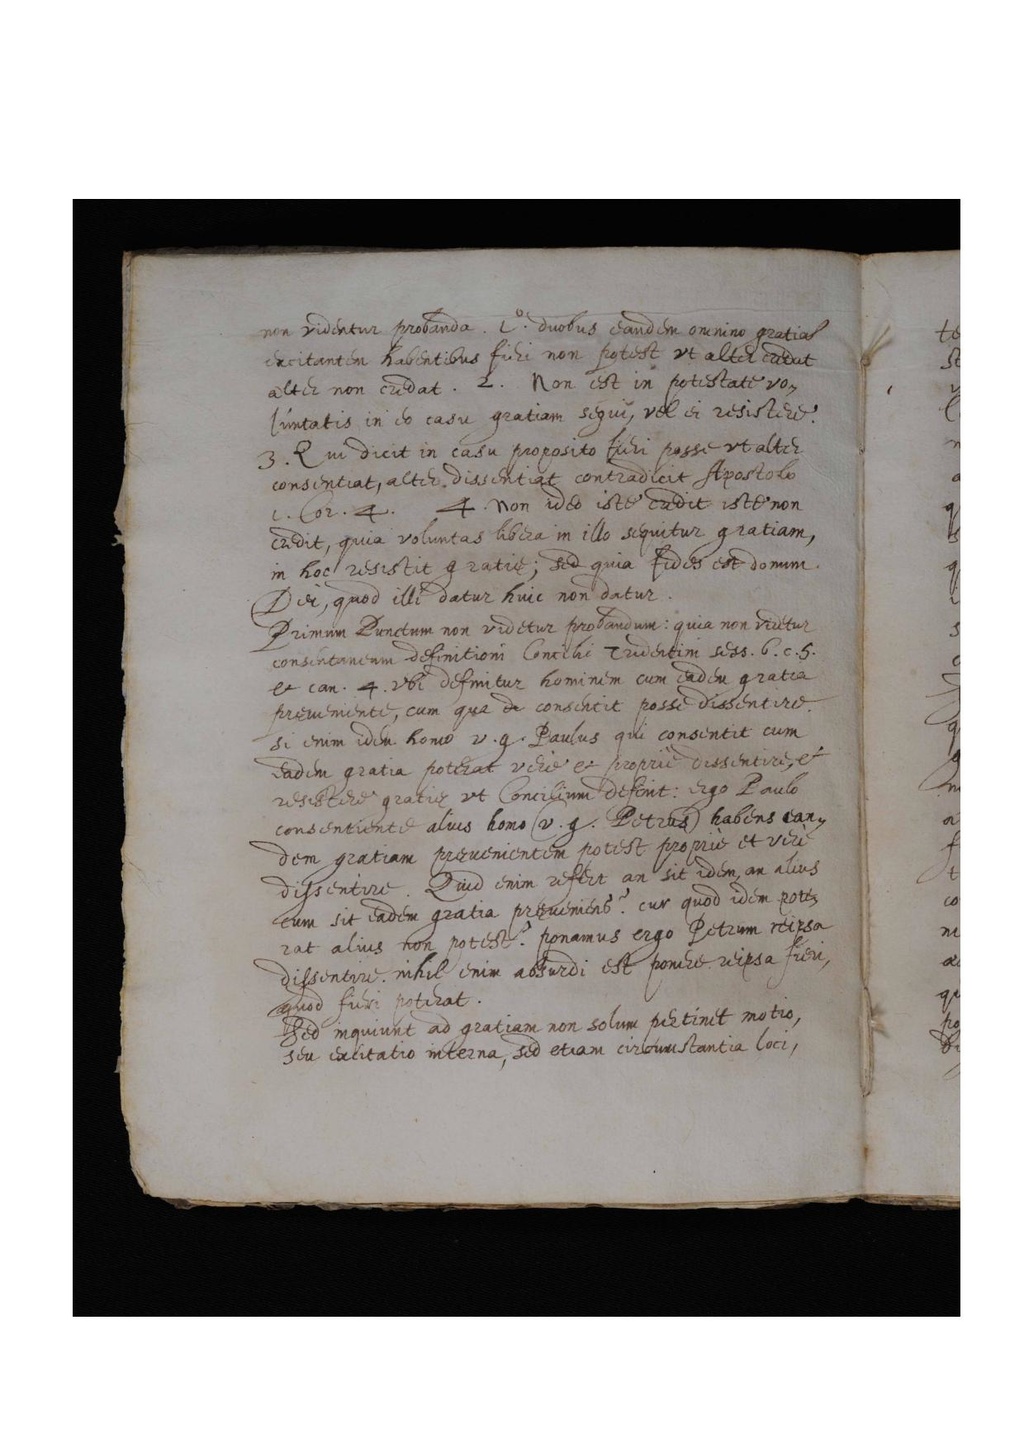 non videntur probanda. 1º. duobus eandem omnino gratiaḿ
excitantem habentibus fieri non potest vt alter credat
alter non credat. 2. Non est in potestate vo,,
luntatis in eo casu gratiam sequi, vel ei resistere.
3. Qui dicit in casu proposito fieri posse vt alter
consentiat, alter dissentiat contradicit Apostolo
1. Cor. 4. 4. Non ideo iste credit iste non
credit, quia voluntas libera in illo sequitur gratiam,
in hoc resistit gratię; sed quia fides est donum
Dei, quod illi datur huic non datur.
Primum Punctum non videtur probandum: quia non videtur
consentaneum definitioni Concilii Tridentini sess. 6. c. 5.
et can. 4. vbi definitur hominem cum eadem gratia
pręueniente, cum qua consentit posse dissentire.
si enim idem homo v. g. Paulus qui consentit cum
eadem gratia poterat verè et propriè dissentire, et
resistere gratię vt Concilium definit: ergo Paulo
consentiente alius homo (v. g. Petrus) habens ean,,
dem gratiam pręuenientem potest propriè et verè
dissentire. Quid enim refert an sit idem, an alius
cum sit eadem gratia pręueniens? cur quod idem pote,,
rat alius non potest? ponamus ergo Petrum reipsa
dissentire. nihil enim absurdi est ponere reipsa fieri,
quod fieri poterat.
Sed inquiunt ad gratiam non solum pertinet motio,
seu excitatio interna, sed etiam circumstantia loci,
te
st
v
n
a
q
q
s
q
a
f
t
co
m
qu
po